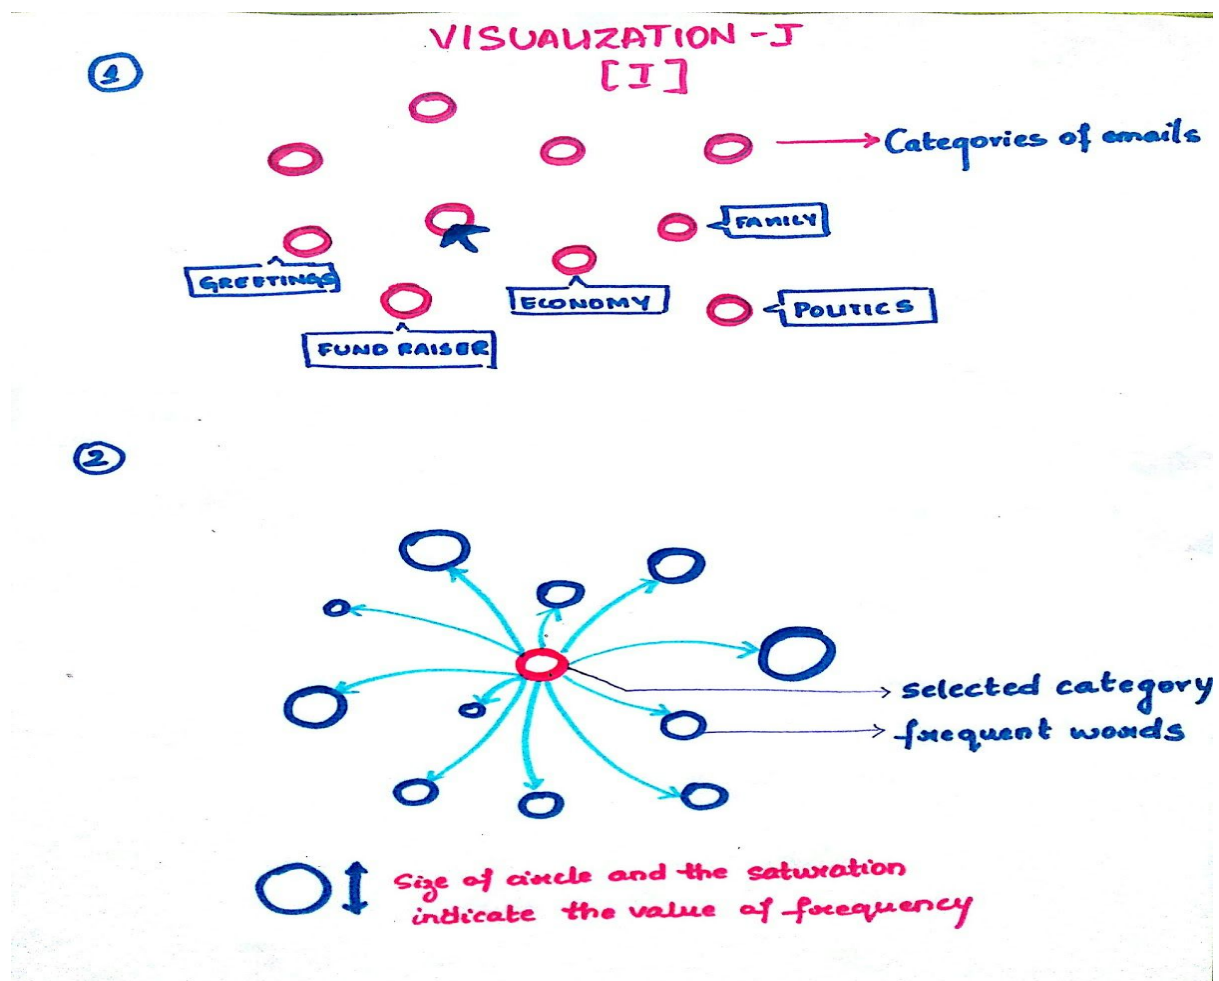 VISUALIZATION - I
[I]
1
Categories of emails
FAMILY
GREETINGS
ECONOMY
POLITICS
FUND RAISER
2
selected category
frequent words
Size of circle and the saturation
indicate the value of frequency